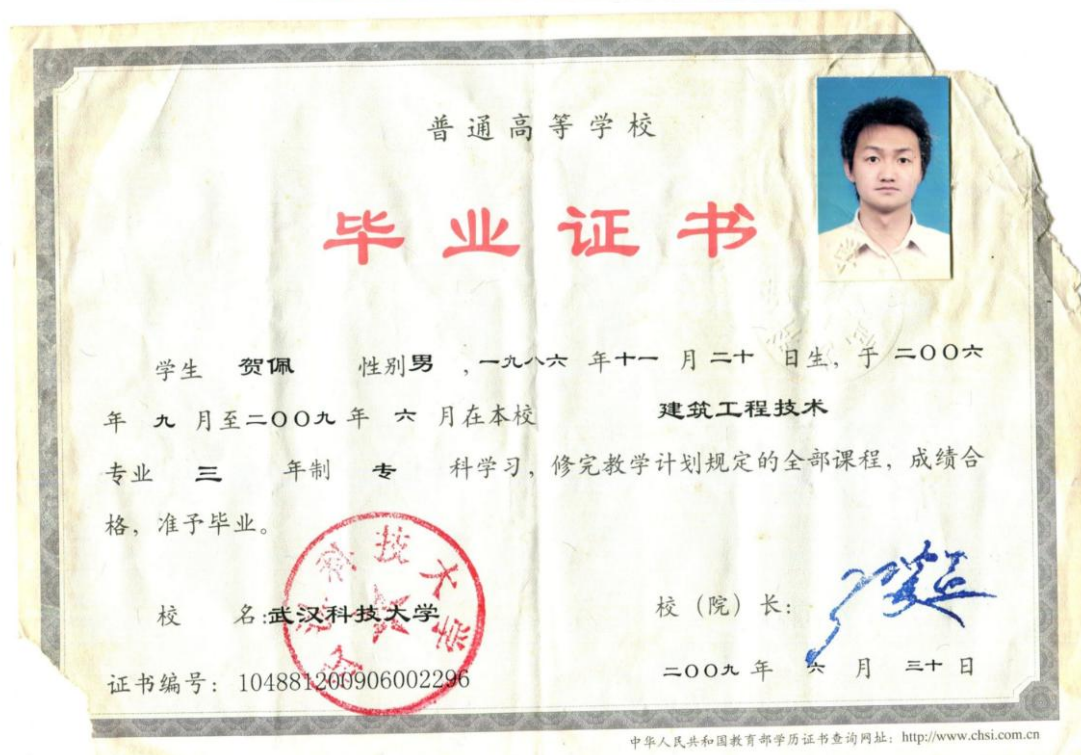 普通高等学校
毕业证书
学生 贺佩 性别男，一九八六年十一月二十日生，于二〇〇六
年九月至二〇〇九年六月在本校 建筑工程技术
专业 三 年制 专 科学习，修完教学计划规定的全部课程，成绩合
格，准予毕业。
武汉科技大学
校 名:武汉科技大学
校（院）长：
证书编号：104881200906002296
二〇〇九年六月三十日
中华人民共和国教育部学历证书查询网址：http://www.chsi.com.cn